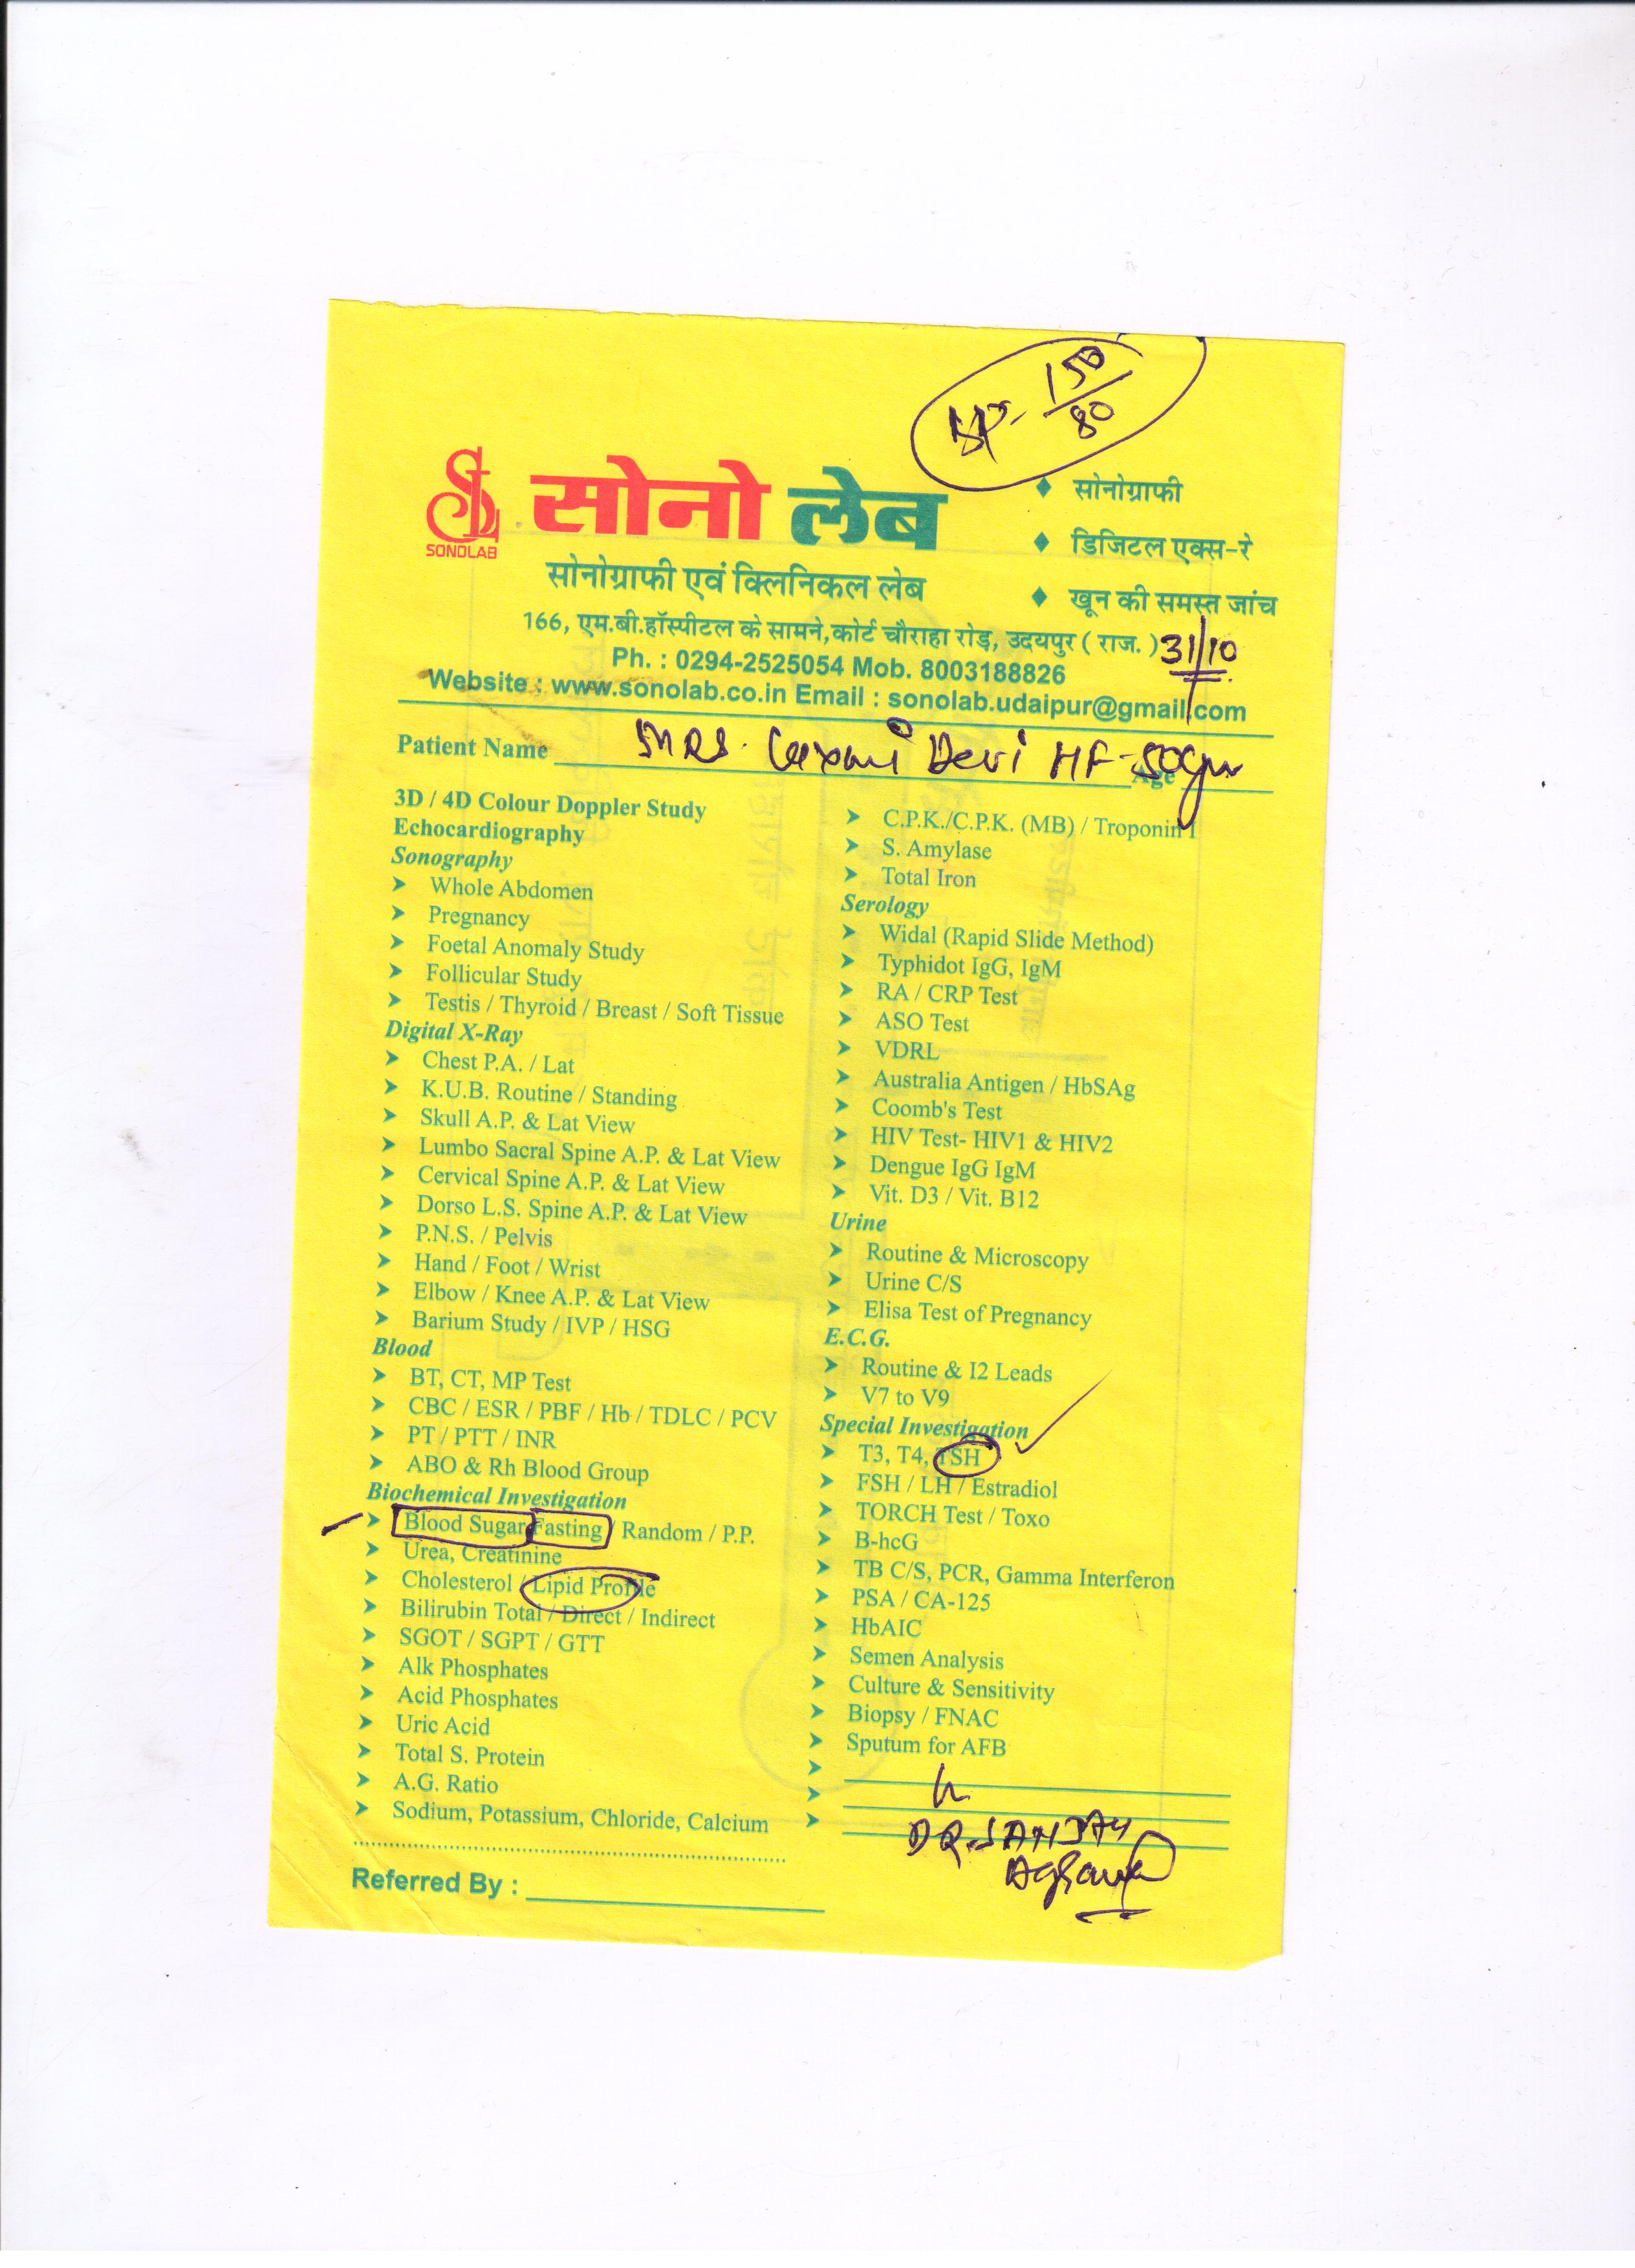 BP- 150/80
SONOLAB
सोनो लेब
सोनोग्राफी एवं क्लिनिकल लेब
♦ सोनोग्राफी
♦ डिजिटल एक्स-रे
♦ खून की समस्त जांच
166, एम.बी.हॉस्पीटल के सामने,कोर्ट चौराहा रोड़, उदयपुर ( राज. ) 31/10
Ph. : 0294-2525054 Mob. 8003188826
Website : www.sonolab.co.in Email : sonolab.udaipur@gmail.com
Patient Name MRS. Laxmi Devi HF-50 Age
3D / 4D Colour Doppler Study
Echocardiography
Sonography
➤ Whole Abdomen
➤ Pregnancy
➤ Foetal Anomaly Study
➤ Follicular Study
➤ Testis / Thyroid / Breast / Soft Tissue
Digital X-Ray
➤ Chest P.A. / Lat
➤ K.U.B. Routine / Standing
➤ Skull A.P. & Lat View
➤ Lumbo Sacral Spine A.P. & Lat View
➤ Cervical Spine A.P. & Lat View
➤ Dorso L.S. Spine A.P. & Lat View
➤ P.N.S. / Pelvis
➤ Hand / Foot / Wrist
➤ Elbow / Knee A.P. & Lat View
➤ Barium Study / IVP / HSG
Blood
➤ BT, CT, MP Test
➤ CBC / ESR / PBF / Hb / TDLC / PCV
➤ PT / PTT / INR
➤ ABO & Rh Blood Group
Biochemical Investigation
➤ Blood Sugar Fasting / Random / P.P.
➤ Urea, Creatinine
➤ Cholesterol / Lipid Profile
➤ Bilirubin Total / Direct / Indirect
➤ SGOT / SGPT / GTT
➤ Alk Phosphates
➤ Acid Phosphates
➤ Uric Acid
➤ Total S. Protein
➤ A.G. Ratio
➤ Sodium, Potassium, Chloride, Calcium
Referred By :
➤ C.P.K./C.P.K. (MB) / Troponin I
➤ S. Amylase
➤ Total Iron
Serology
➤ Widal (Rapid Slide Method)
➤ Typhidot IgG, IgM
➤ RA / CRP Test
➤ ASO Test
➤ VDRL
➤ Australia Antigen / HbSAg
➤ Coomb's Test
➤ HIV Test- HIV1 & HIV2
➤ Dengue IgG IgM
➤ Vit. D3 / Vit. B12
Urine
➤ Routine & Microscopy
➤ Urine C/S
➤ Elisa Test of Pregnancy
E.C.G.
➤ Routine & I2 Leads
➤ V7 to V9
Special Investigation
➤ T3, T4, TSH
➤ FSH / LH / Estradiol
➤ TORCH Test / Toxo
➤ B-hcG
➤ TB C/S, PCR, Gamma Interferon
➤ PSA / CA-125
➤ HbAIC
➤ Semen Analysis
➤ Culture & Sensitivity
➤ Biopsy / FNAC
➤ Sputum for AFB
DR. SANJAY
Agrawal